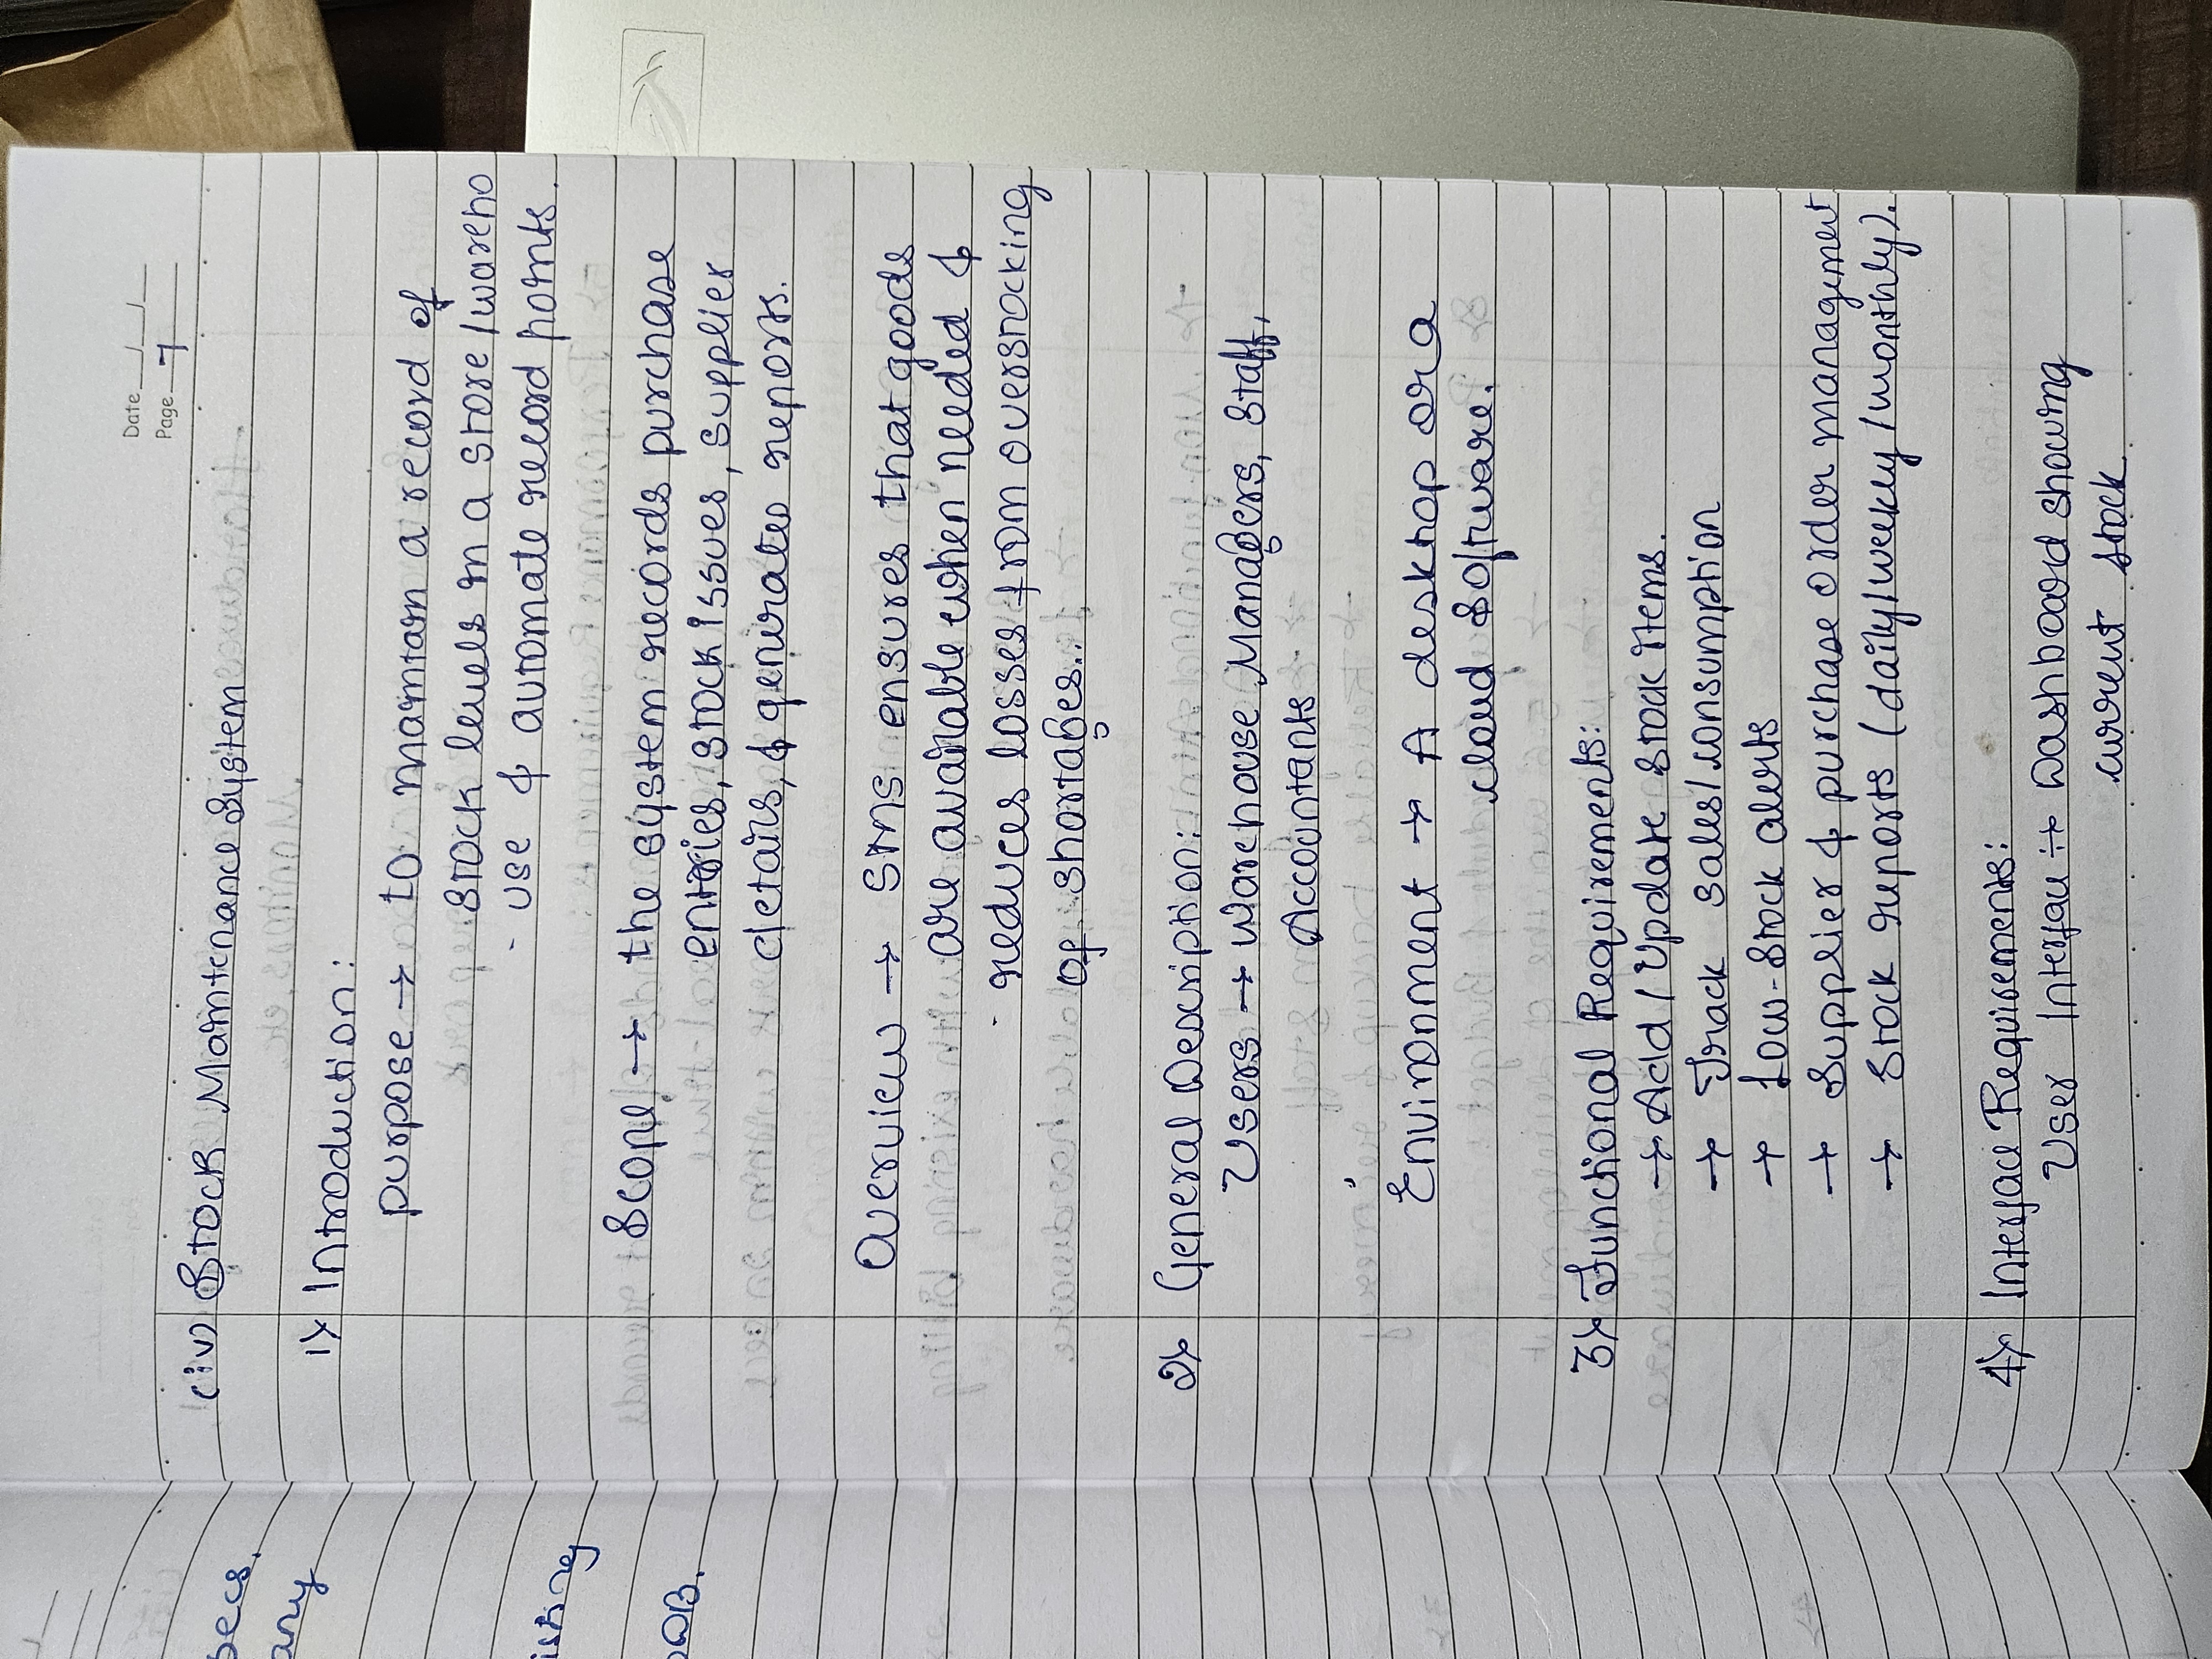 Date
Page 7
(iv) Stock Maintenance System
1) Introduction:
purpose → to maintain a record of
stock levels in a store/wareho
- use & automate record points.
Scope → the system records purchase
entries, stock issues, supplier
details, & generates reports.
Overview → SMS ensures that goods
are available when needed &
reduces losses from overstocking
of shortages..
2) General Description:
Users → Warehouse Managers, Staff,
Accountants
Environment → A desktop or a
cloud Software.
3) Functional Requirements:
→ Add/Update Stock Items.
→ Track sales/consumption
→ Low-Stock alerts
→ Supplier & purchase order management
→ Stock reports (daily/weekly/monthly).
4) Interface Requirements:
User Interface :→ Dashboard showing
current stock
secs.
any
isting
DB.